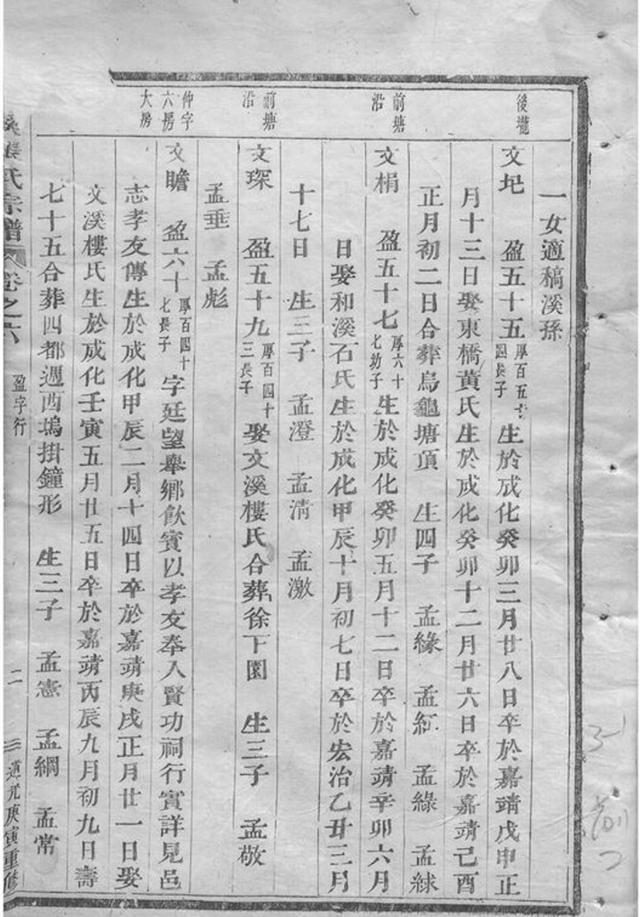 一女適稿溪孫
後瓏
文圯 盈五十五 厚百五十四長子 生於成化癸卯三月廿八日卒於嘉靖戊申正
月十三日娶東橋黃氏生於成化癸卯十二月廿六日卒於嘉靖己酉
正月初二日合葬烏龜塘頂 生四子 孟緣 孟紅 孟綠 孟絿
前塘沿
文楫 盈五十七 厚六十七幼子 生於成化癸卯五月十二日卒於嘉靖辛卯六月
日娶和溪石氏生於成化甲辰十月初七日卒於宏治乙丑三月
十七日 生三子 孟澄 孟清 孟激
前塘沿
文琛 盈五十九 厚百四十三長子 娶文溪樓氏合葬徐下園 生三子 孟敬
孟垂 孟彪
仲字六房大房
文瞻 盈六十 厚百四十七長子 字廷望舉鄉飲賓以孝友奉入賢功祠行實詳見邑
志孝友傳生於成化甲辰二月十四日卒於嘉靖庚戌正月廿一日娶
文溪樓氏生於成化壬寅五月廿五日卒於嘉靖丙辰九月初九日壽
七十五合葬四都週酉塢掛鐘形 生三子 孟憲 孟綱 孟常
氏宗譜 卷之六 盈字行 二 道光庚寅重修